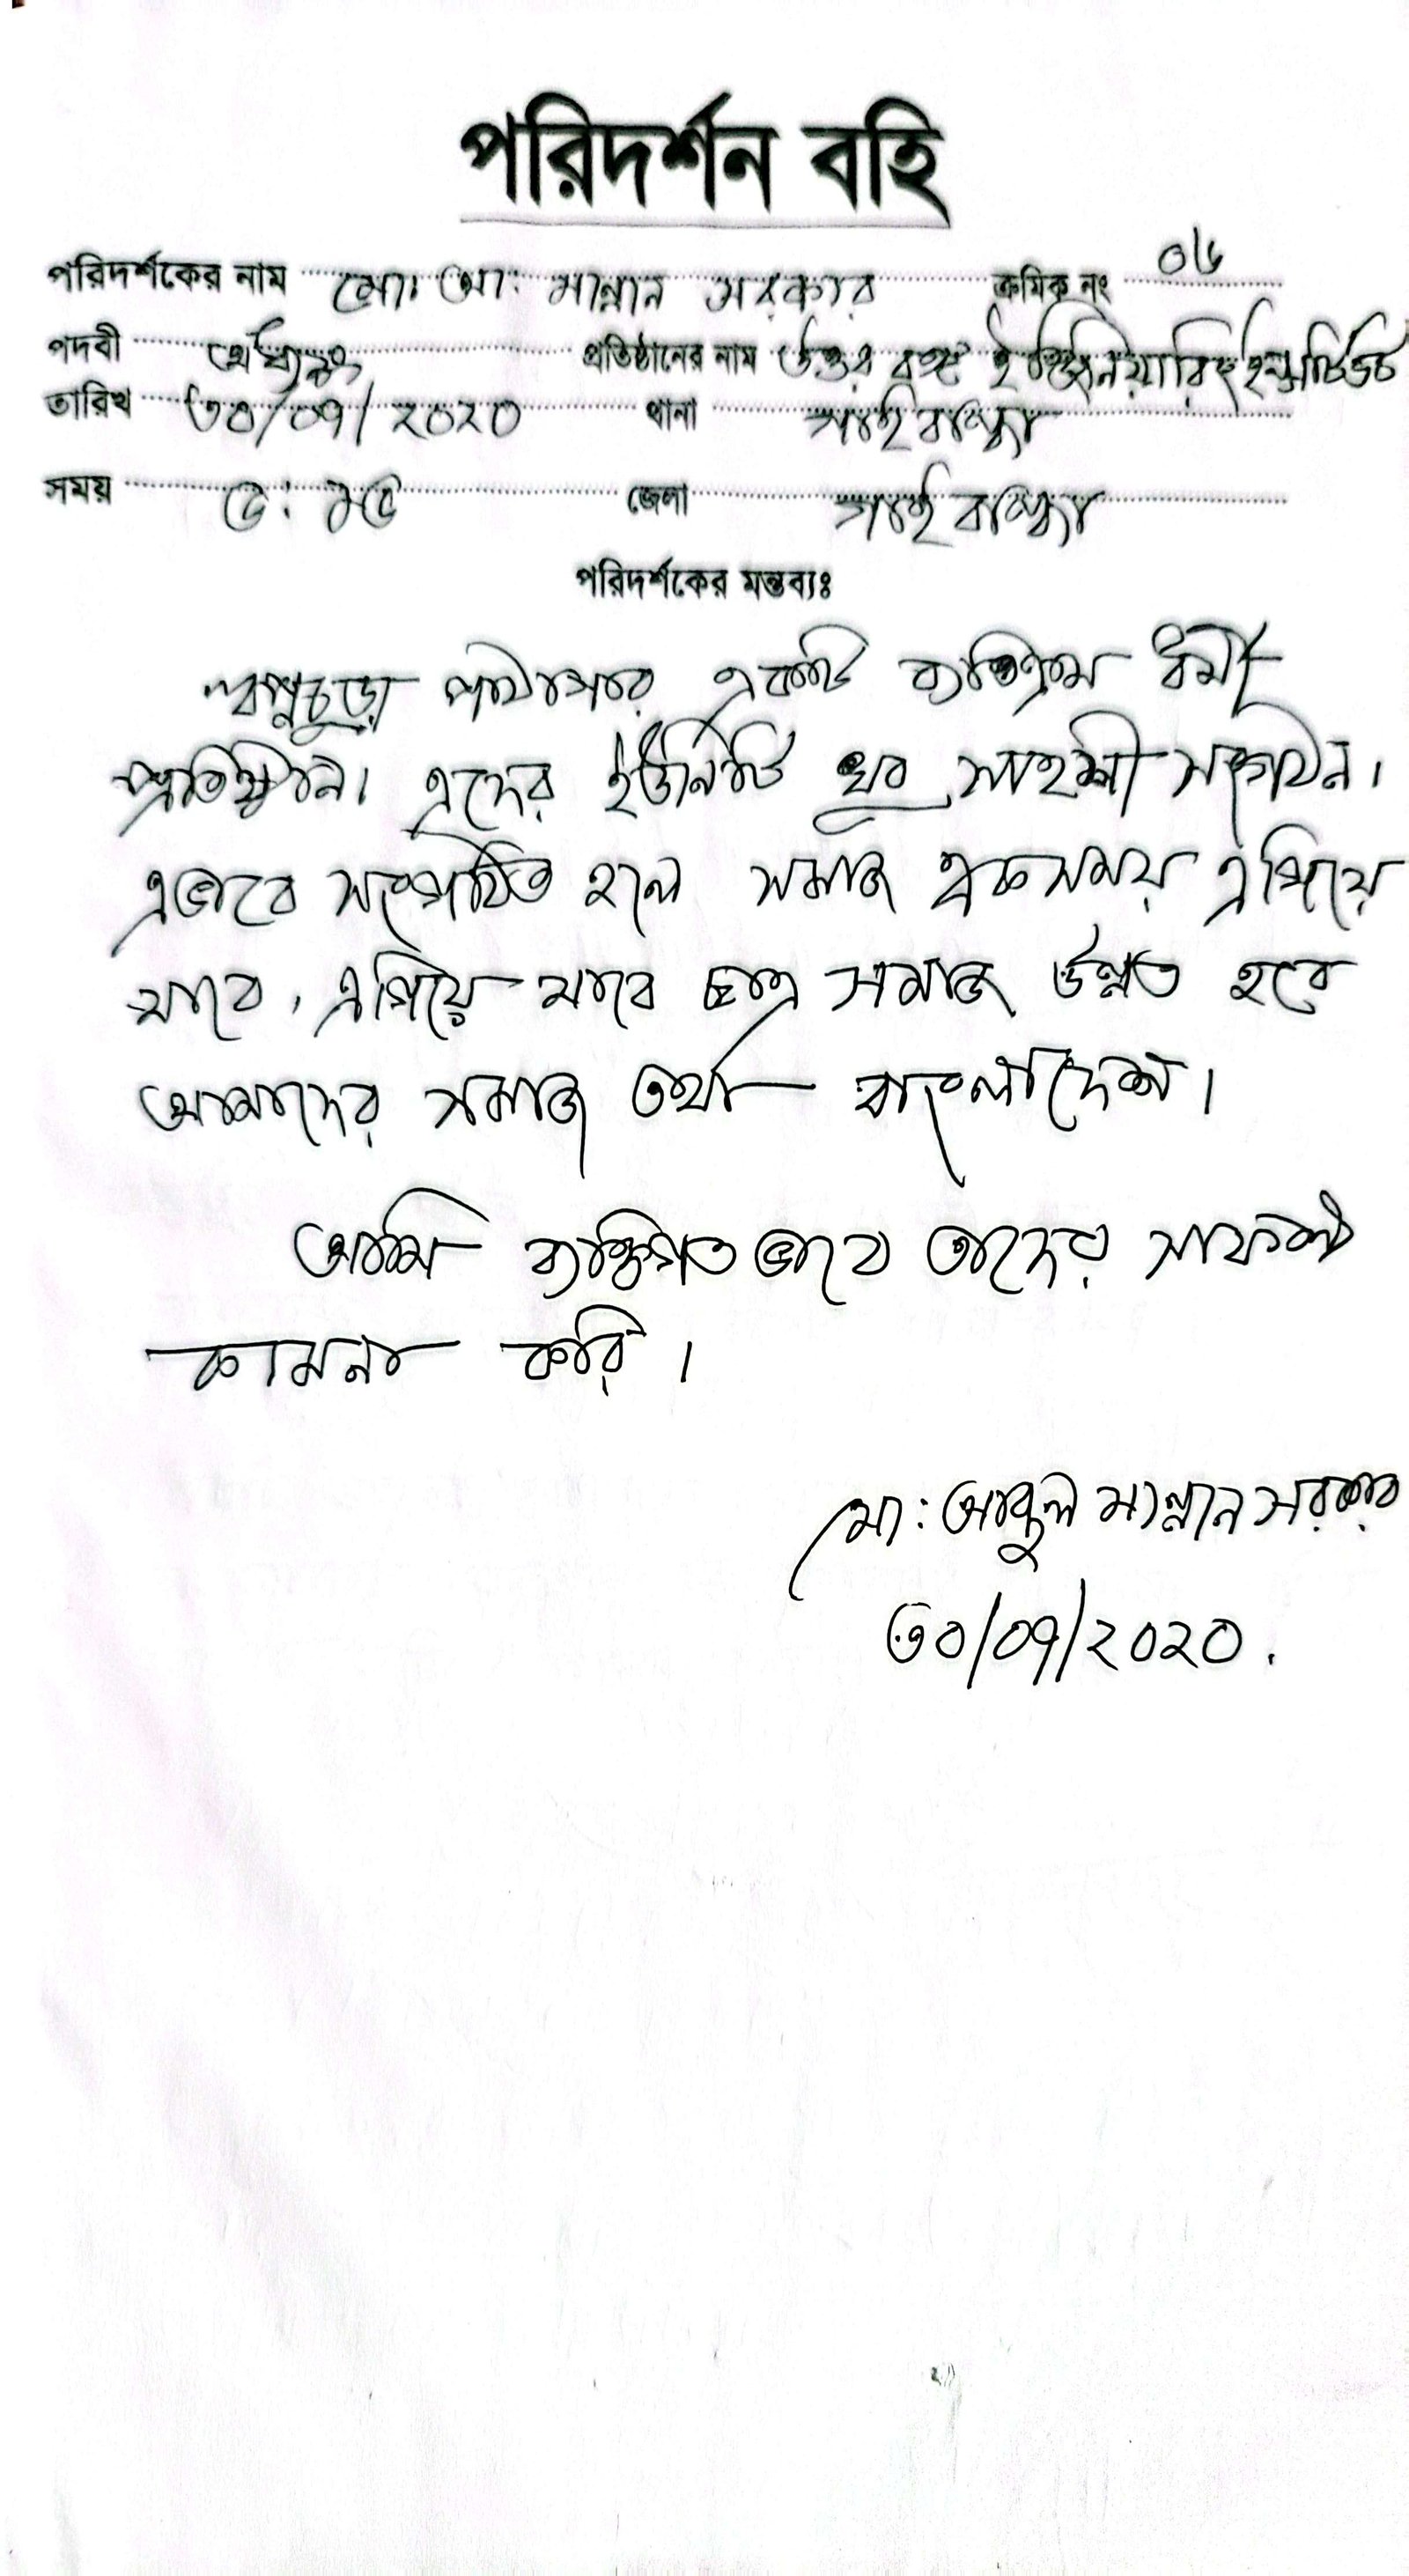 পরিদর্শন বহি
পরিদর্শকের নাম মোঃ আঃ মান্নান সরকার ক্রমিক নং ০৬
পদবী অধ্যক্ষ প্রতিষ্ঠানের নাম উত্তর বঙ্গ ইঞ্জিনিয়ারিং ইন্সটিটিউট
তারিখ ৩০/০৭/২০২০ থানা গাইবান্ধা
সময় জেলা গাইবান্ধা
পরিদর্শকের মন্তব্যঃ
স্বপ্নচূড়া পাঠাগার একটি ব্যতিক্রম ধর্মী
প্রতিষ্ঠান। এদের ইউনিটি খুব সাহসী সংগঠন।
এভাবে সংগঠিত হলে সমাজ একসময় এগিয়ে
যাবে, এগিয়ে যাবে ছাত্র সমাজ উন্নত হবে
আমাদের সমাজ তথা বাংলাদেশ।
আমি ব্যক্তিগত ভাবে তাদের সাফল্য
কামনা করি।
মো: আব্দুল মান্নান সরকার
৩০/০৭/২০২০.